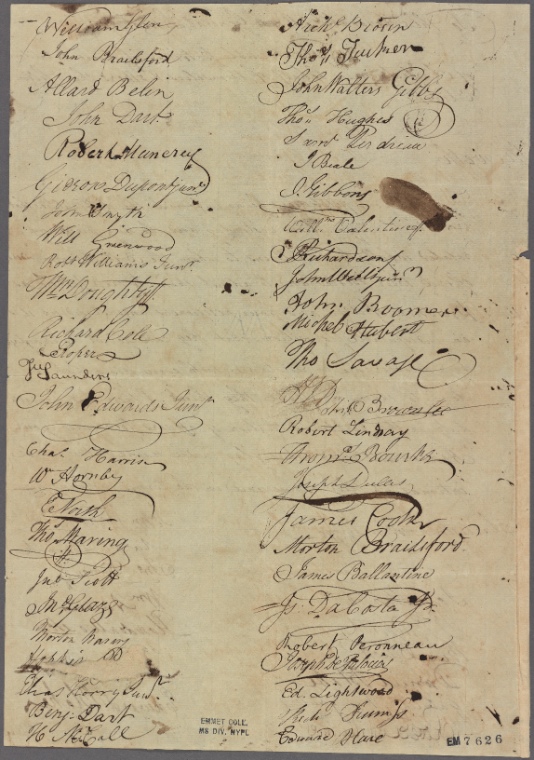 William
John Brailsford
Allard Belin
John Dart
Robert
Gideon Dupont Junr
John Smyth
Will Greenwood
Robt Williams Junr
Wm Doughty
Richard Cole
Roper
Saunders
John Edwards Junr
Chas Harris
W Hornby
E North
Thos Waring
Jno Scott
Morton Waring
Hopkins
Chas Junr
Benj. Dart
H McCall
Archd Brown
Thos Turner
John Walters Gibbs
Thos Hughes
J Beale
J Gibbons
Wm Valentine
Richardson
John Webb Junr
John Boomer
Michel Hubert
Tho Savage
Robert Lindsay
Thoms Bourke
Joseph
James Cook
Morton Brailsford
James Ballantine
Js DaCosta Jr.
Robert Peronneau
Joseph
Ed. Lightwood
Edward Hare
EMMET COLL.
MS DIV. NYPL
EM 7626